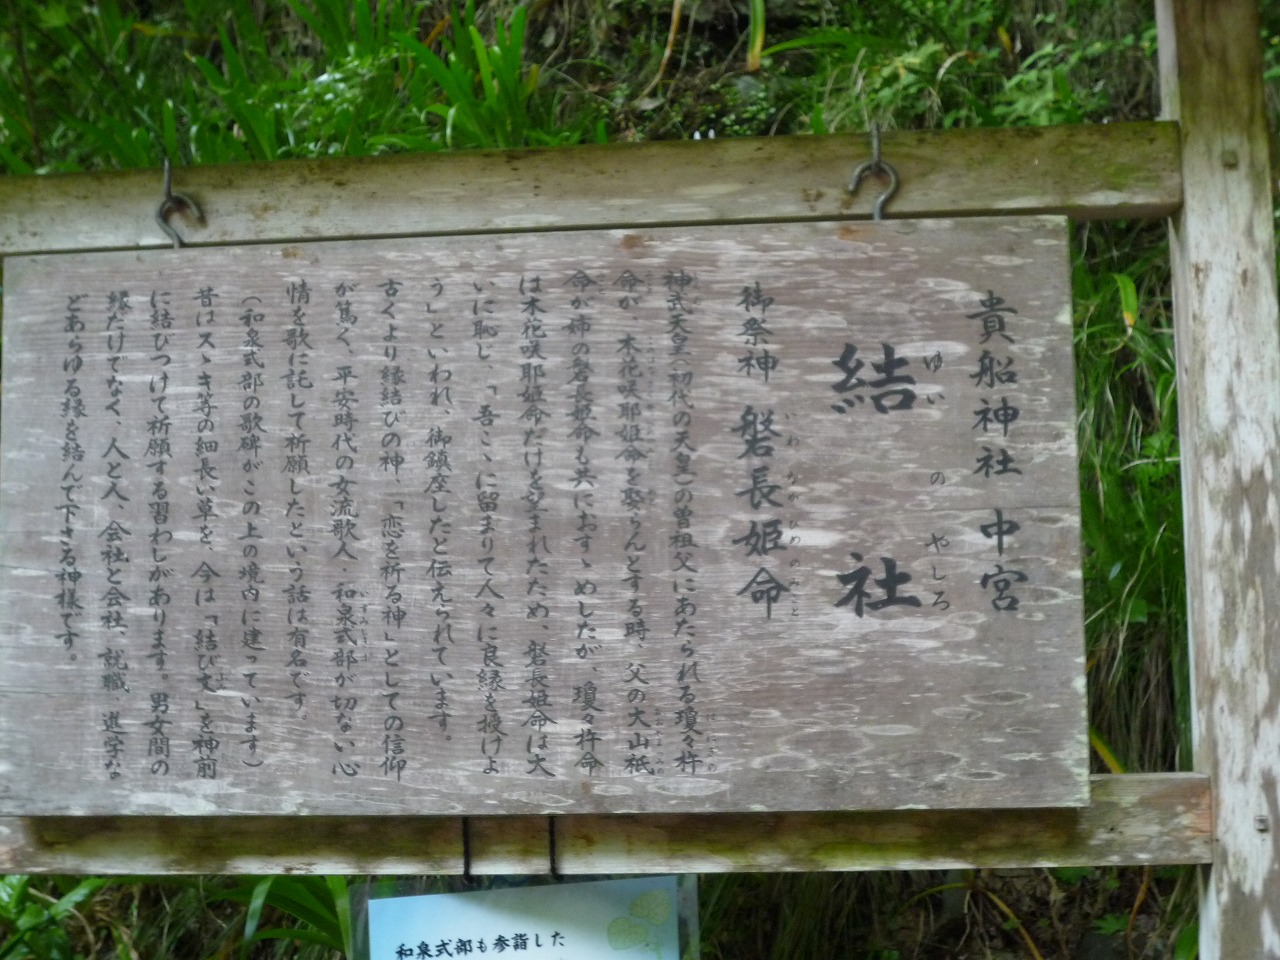 貴船神社 中宮
結社
ゆいのやしろ
御祭神 磐長姫命
いわながひめのみこと
神武天皇(初代の天皇)の曽祖父にあたられる瓊々杵
命が、木花咲耶姫命を娶らんとする時、父の大山祇
命が姉の磐長姫命も共におすゝめしたが、瓊々杵命
は木花咲耶姫命だけを望まれたため、磐長姫命は大
いに恥じ、「吾こゝに留まりて人々に良縁を授けよ
う」といわれ、御鎮座したと伝えられています。
古くより縁結びの神、「恋を祈る神」としての信仰
が篤く、平安時代の女流歌人・和泉式部が切ない心
情を歌に託して祈願したという話は有名です。
(和泉式部の歌碑がこの上の境内に建っています)
昔はスゝキ等の細長い草を、今は「結び文」を神前
に結びつけて祈願する習わしがあります。男女間の
縁だけでなく、人と人、会社と会社、就職、進学な
どあらゆる縁を結んで下さる神様です。
和泉式部も参詣した